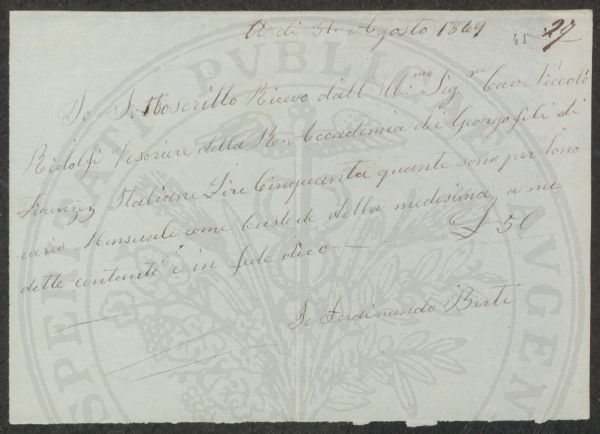 A dì 31. Agosto 1869
45 29
Io Sottoscritto Ricevo dall' Ill:mo Sig.re Cav: Niccolò
Ridolfi Tesoriere della R. Accademia dei Georgofili di
Firenze Italiane Lire Cinquanta quante sono per l'ono
rario Mensuale come Custode della medesima a me
dette contanti è in fede dico — £ 50
Io Ferdinando Berti